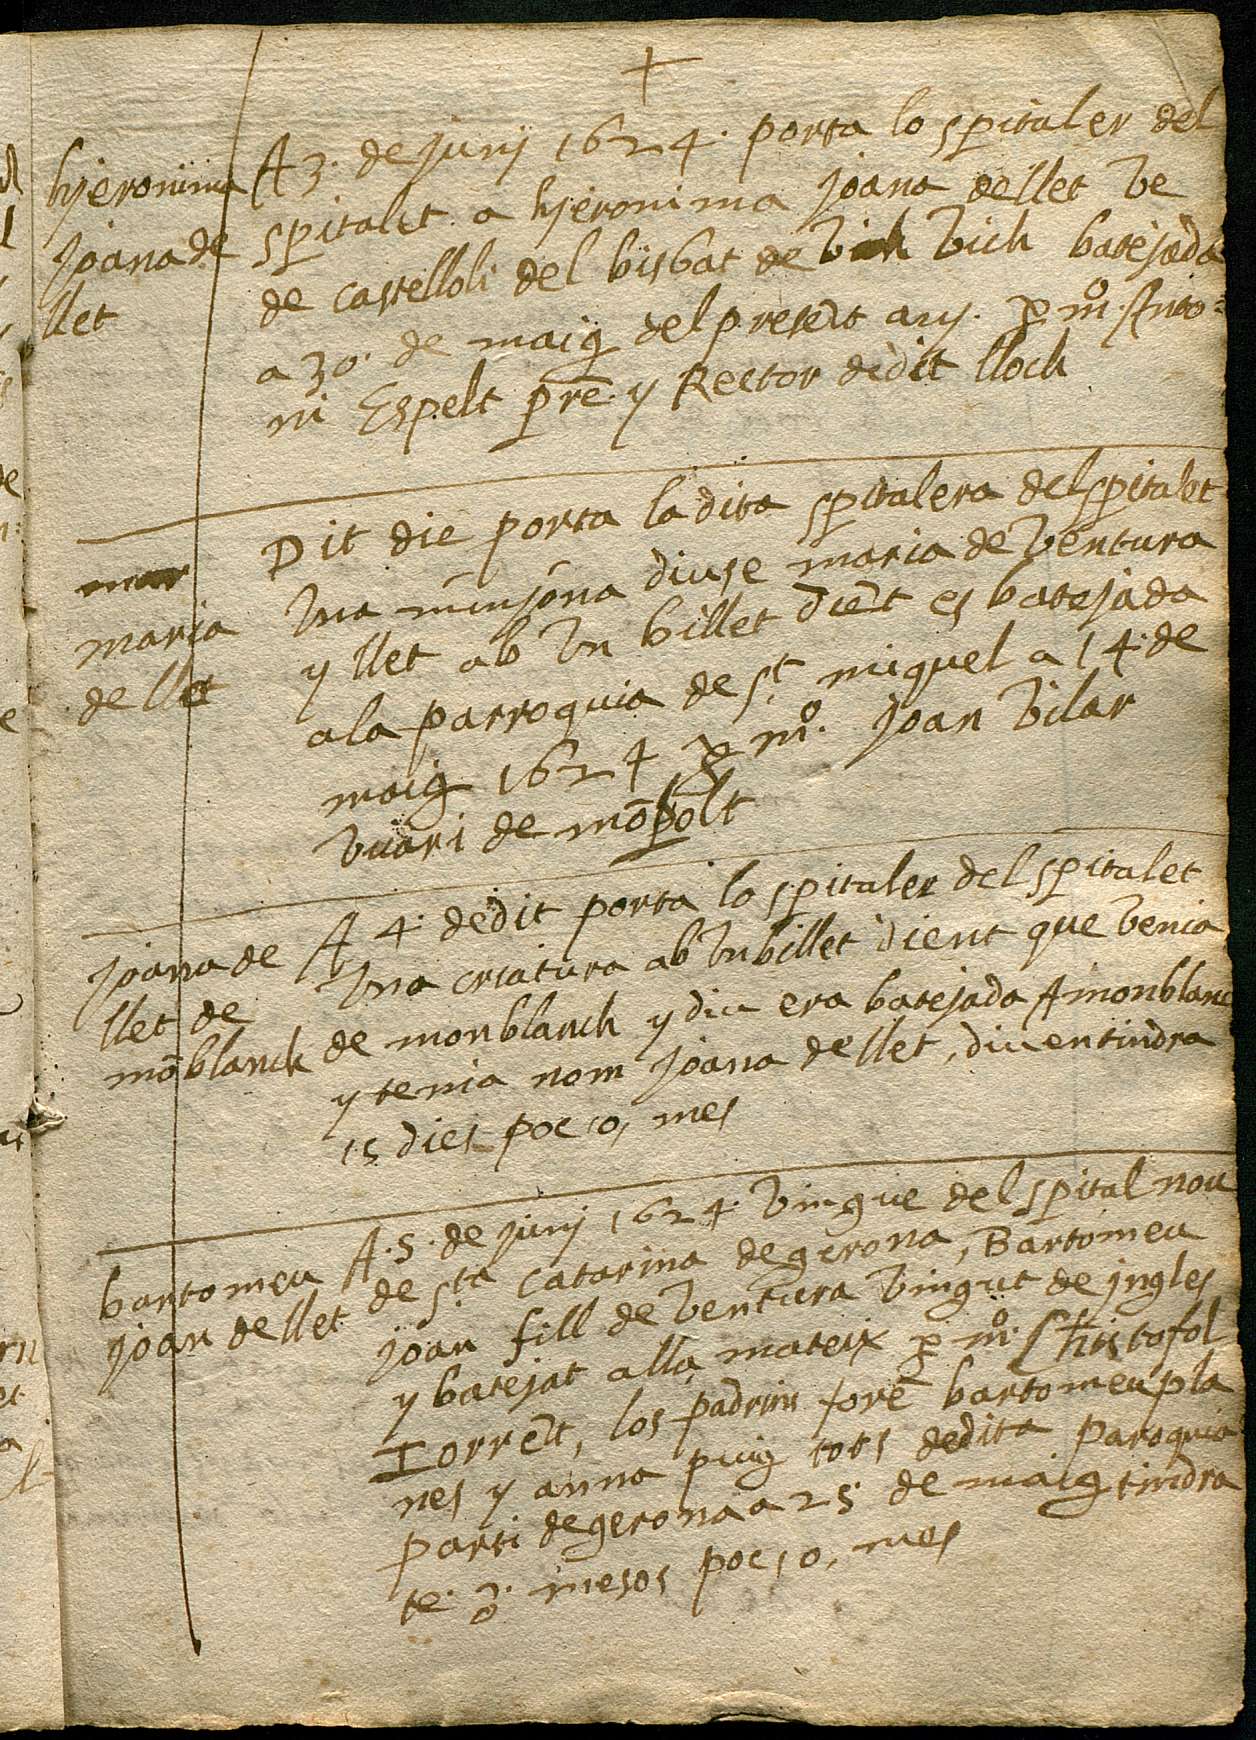 +
hjeronima
Joana de
llet
A 3. de juny 1624. porta lo spitaler del
spitalet a hjeronima Joana de llet ve
de castelloli del bisbat de Vich batejada
a 30. de maig del present any. p mº. Anto=
ni Espelt pre. y Rector de dit lloch
maria
de llet
Dit die porta la dita spitalera del spitalet
Vna minyona diu se maria de Ventura
y llet ab Vn billet dient es batejada
a la parroquia de St. miquel a 14. de
maig 1624 p mº. Joan Vilar
Vicari de
Joana de
llet de
mōblanch
A 4. de dit porta lo spitaler del spitalet
Vna criatura ab Vn billet dient que Venia
de monblanch y diu era batejada A monblanc
y tenia nom Joana de llet, diu en tindra
15 dies poc, o, mes
bartomeu
Joan de llet
A. 5. de juny 1624. Vingue del spital nou
de Sta. Catarina de gerona, Bartomeu
Joan fill de Ventura Vingut de jngles
y batejat alla mateix p mº. Christofol
Torrēt, los padrins forē bartomeu pla
nes y anna puig tots de dita Paroquia
parti de gerona a 25. de maig tindra
te. 3. mesos poc, o, mes